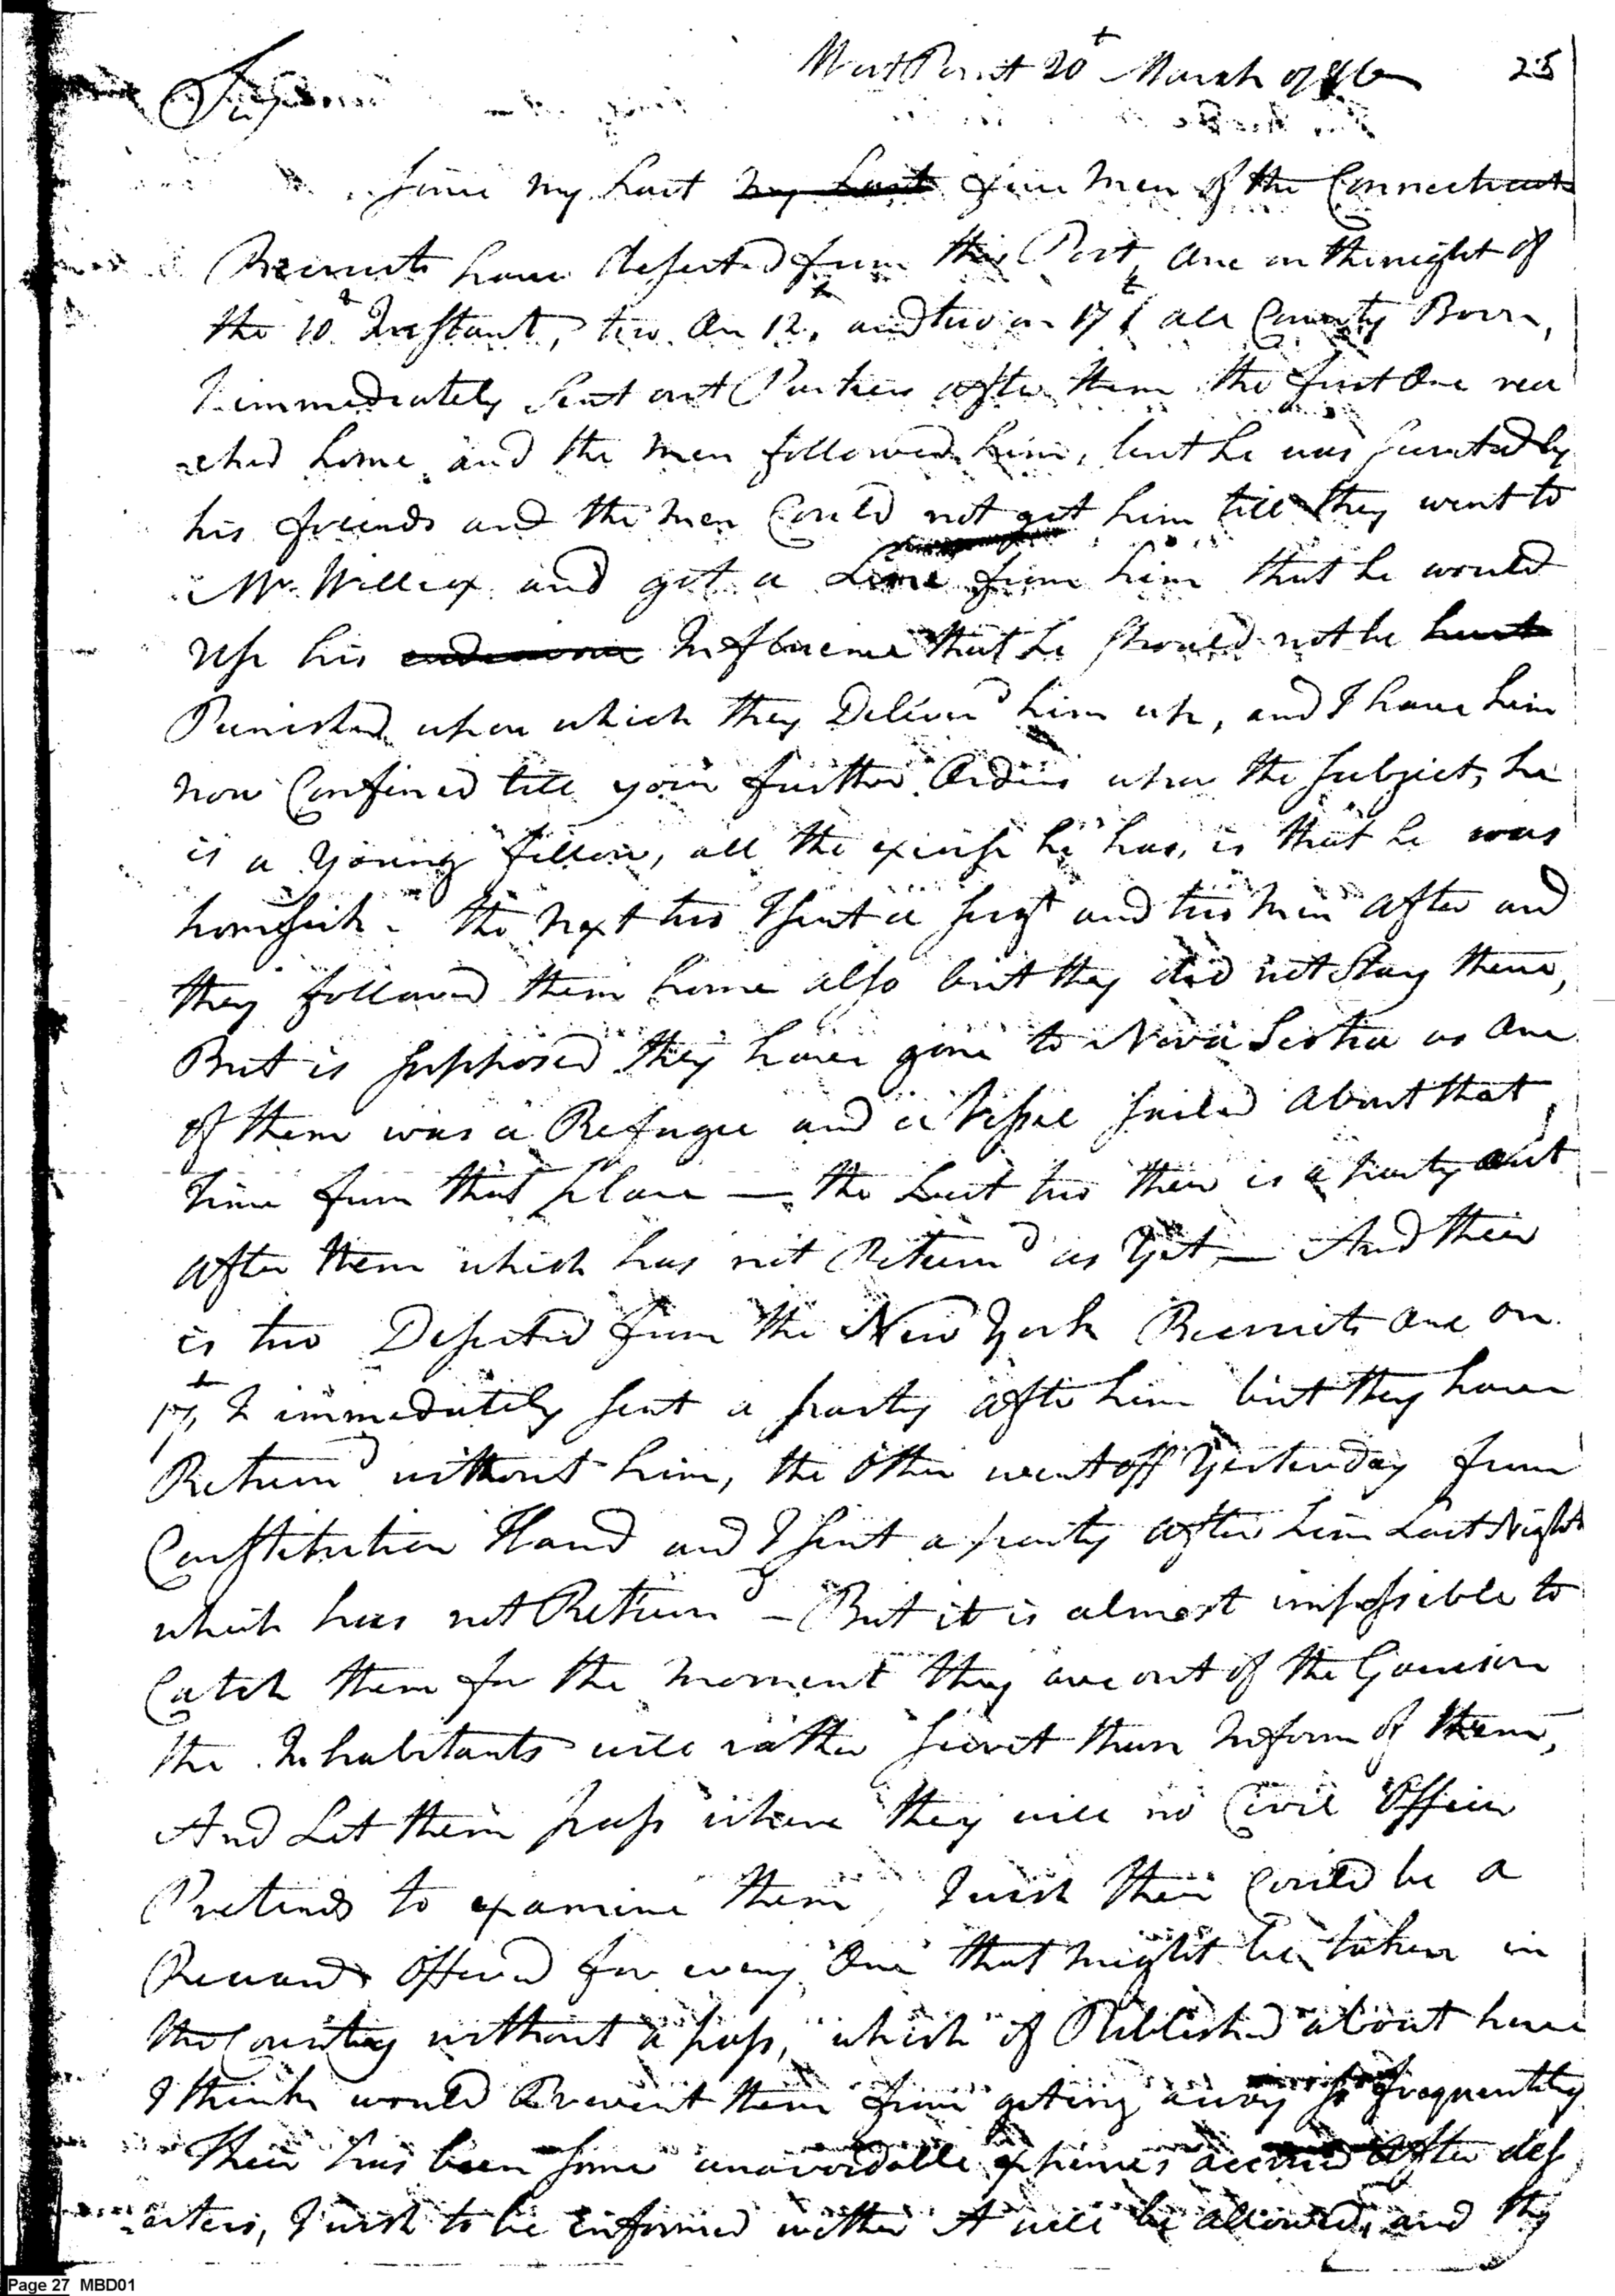 West Point 20t March 1786 25
Sir
Since my Last my Last five men of the Connecticut
Recruits have deserted from this Post, One on the night of
the 10t Instant, two On 12t, and two on 17t all Country Born,
I immediately Sent out Parties after them the first One rea
ched home and the men followed him, but he was Secreted by
his friends and the men Could not get him till they went to
Mr. Willcox and got a Line from him that he would
use his endeavour Influence that he should not be hurt
Punished upon which they Deliverd him up, and I have him
now Confined till your further Orders upon the Subject, he
is a young fellow, all the excuse he has, is that he was
homesick - the next two I sent a Sergt and two men after and
they followed them home also but they did not Stay there,
But is supposed they have gone to Nova Scotia as One
of them was a Refugee and a Vessel sailed about that
time from that place — the Last two there is a party out
after them which has not Returnd as yet — And there
is two Deserted from the New York Recruits One on
17t, I immediately sent a party after him but they have
Returnd without him, the Other went off Yesterday from
Constitution Iland and I sent a party after him Last Night
which has not Returnd - But it is almost impossible to
Catch them for the moment they are out of the Garrison
the Inhabitants will rather Secret than Inform of them,
And Let them pass where they will no Civil Officer
Pretends to examine them, I wish there Could be a
Reward Offered for every One that might be taken in
the Country without a pass, which if Published about here
I think would Prevent them from geting away so frequently
There has been some unavoidable expences accrued After des
arters, I wish to be Enformed wither it will be allowed, and the
Page 27 MBD01